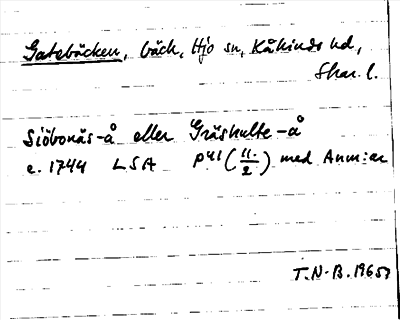 Gatebäcken, bäck, Hjo sn, Kåkinds hd,
Skar. l.
Siöbonäs-å eller Gräshulte-å
c. 1744 LSA P41 (11/2) med Anm:ar
T.N-B. 1965